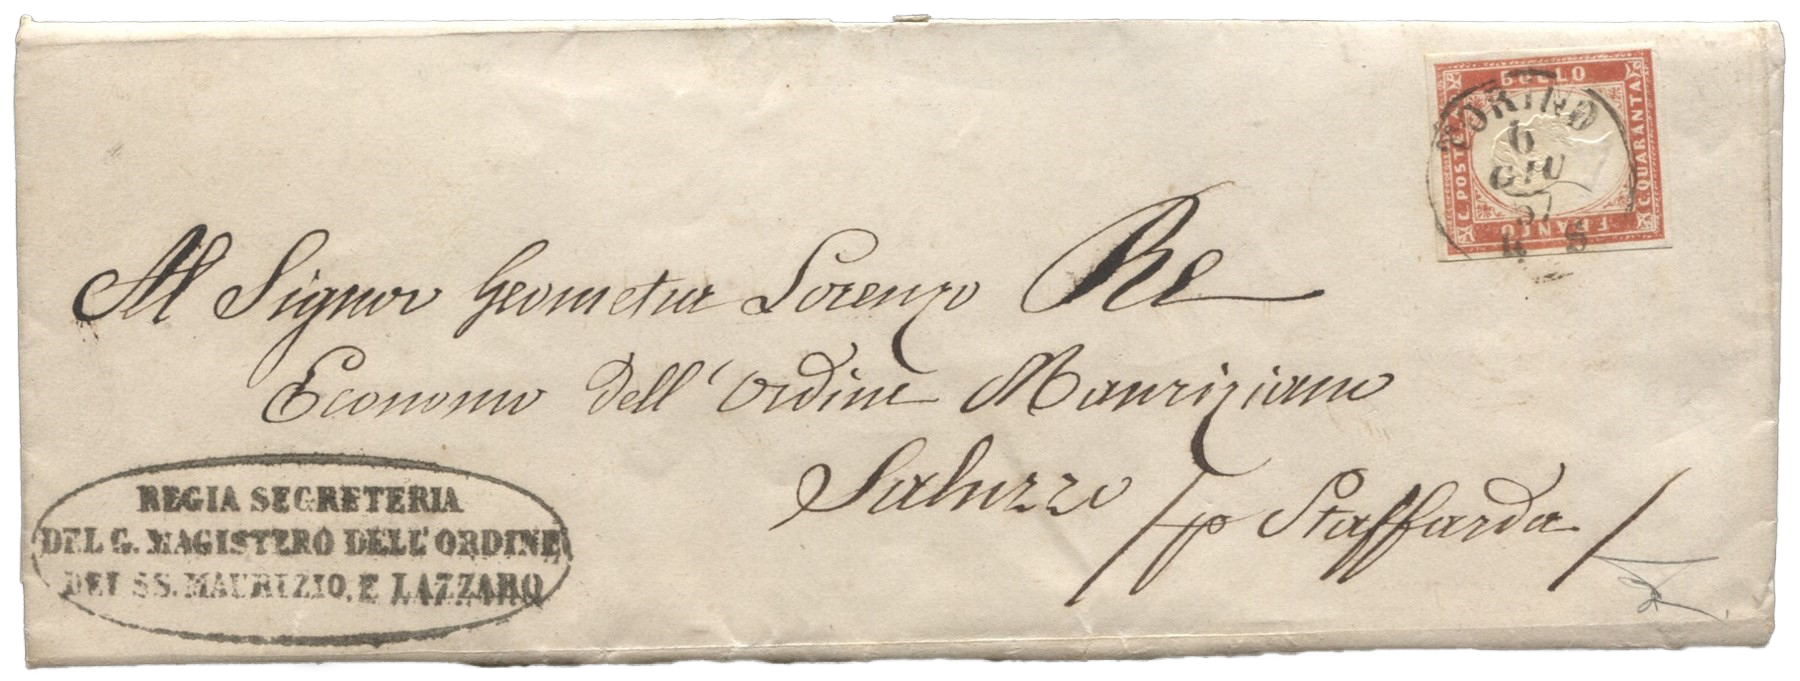 BOLLO
C. POSTALE
C. QUARANTA
FRANCO
TORINO
6
GIU
57
Al Signor Geometra Lorenzo Re
Economo dell'Ordine Mauriziano
Saluzzo /p Staffarda/
REGIA SEGRETERIA
DEL G. MAGISTERO DELL'ORDINE
DEI SS. MAURIZIO, E LAZZARO